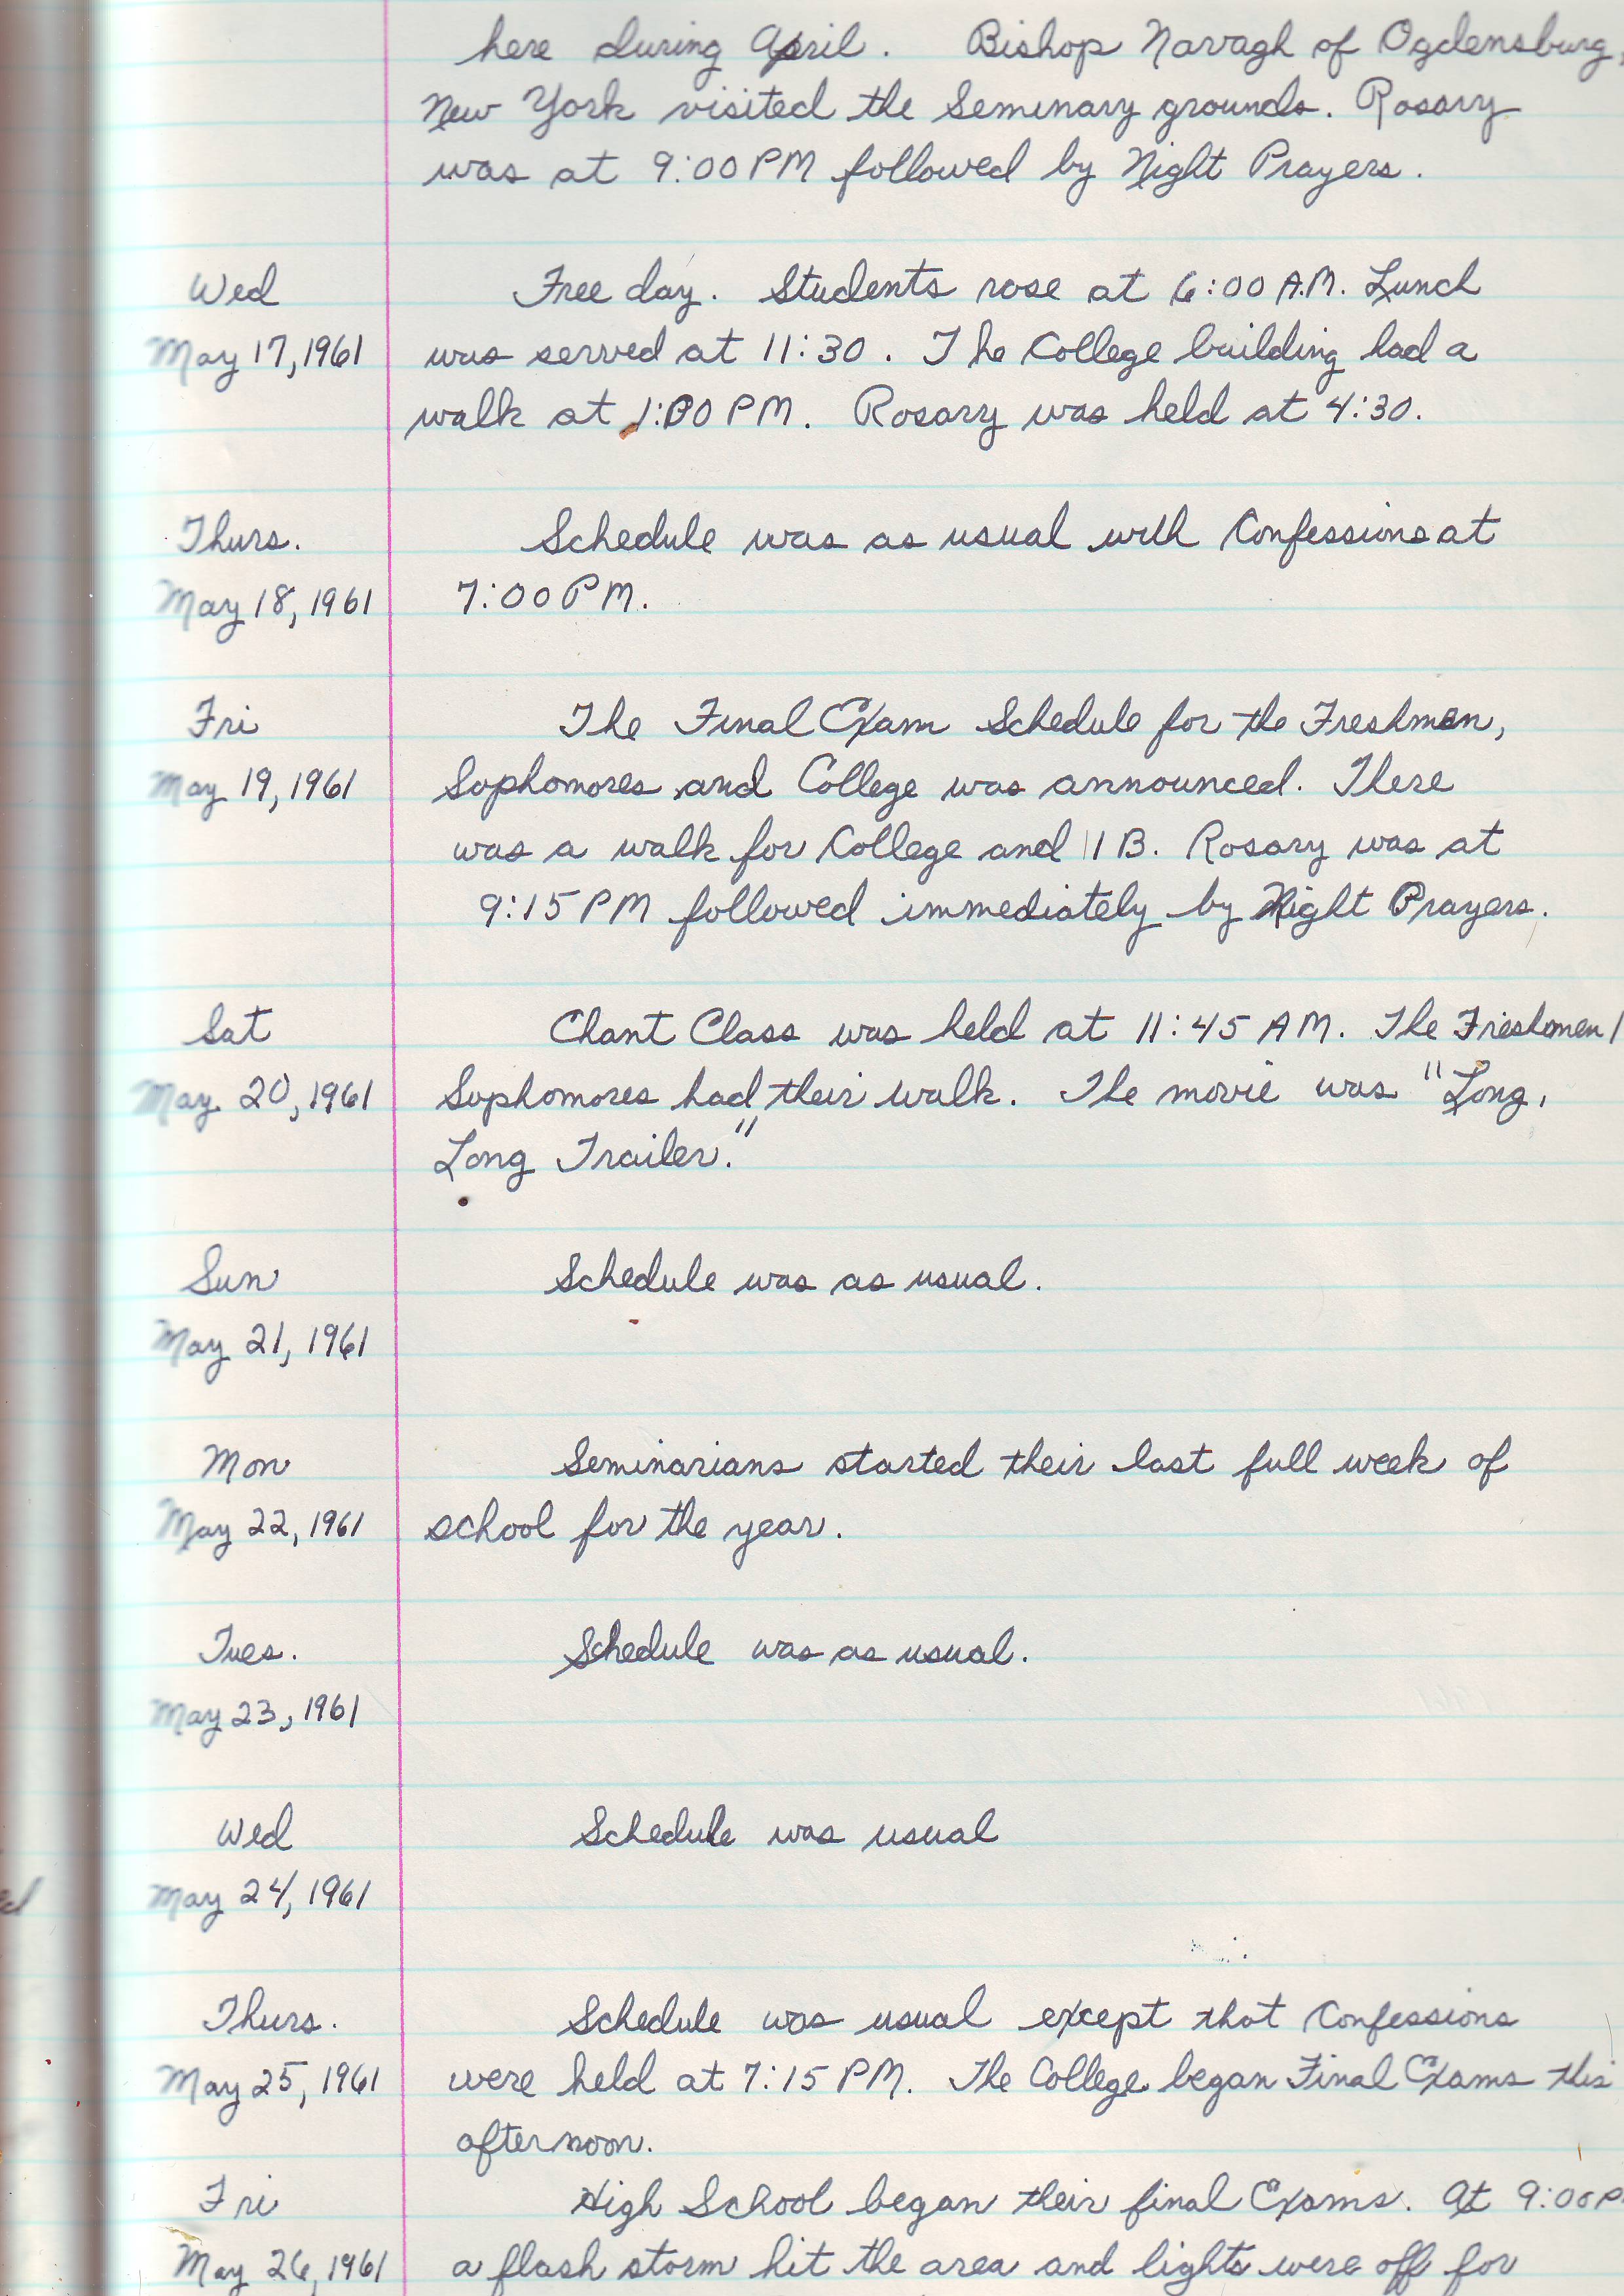 here during April. Bishop Navagh of Ogdensburg,
New York visited the Seminary grounds. Rosary
was at 9:00 PM followed by Night Prayers.
Wed
Free day. Students rose at 6:00 A.M. Lunch
May 17, 1961
was served at 11:30. The College building had a
walk at 1:00 PM. Rosary was held at 4:30.
Thurs.
Schedule was as usual with Confessions at
May 18, 1961
7:00 PM.
Fri
The Final Exam Schedule for the Freshmen,
May 19, 1961
Sophomores and College was announced. There
was a walk for College and 11 B. Rosary was at
9:15 PM followed immediately by Night Prayers.
Sat
Chant Class was held at 11:45 AM. The Freshmen/
May 20, 1961
Sophomores had their walk. The movie was "Long,
Long Trailer."
Sun
Schedule was as usual.
May 21, 1961
Mon
Seminarians started their last full week of
May 22, 1961
school for the year.
Tues.
Schedule was as usual.
May 23, 1961
Wed
Schedule was usual
May 24, 1961
Thurs.
Schedule was usual except that Confessions
May 25, 1961
were held at 7:15 PM. The College began Final Exams this
afternoon.
Fri
High School began their final Exams. At 9:00 P
May 26, 1961
a flash storm hit the area and lights were off for